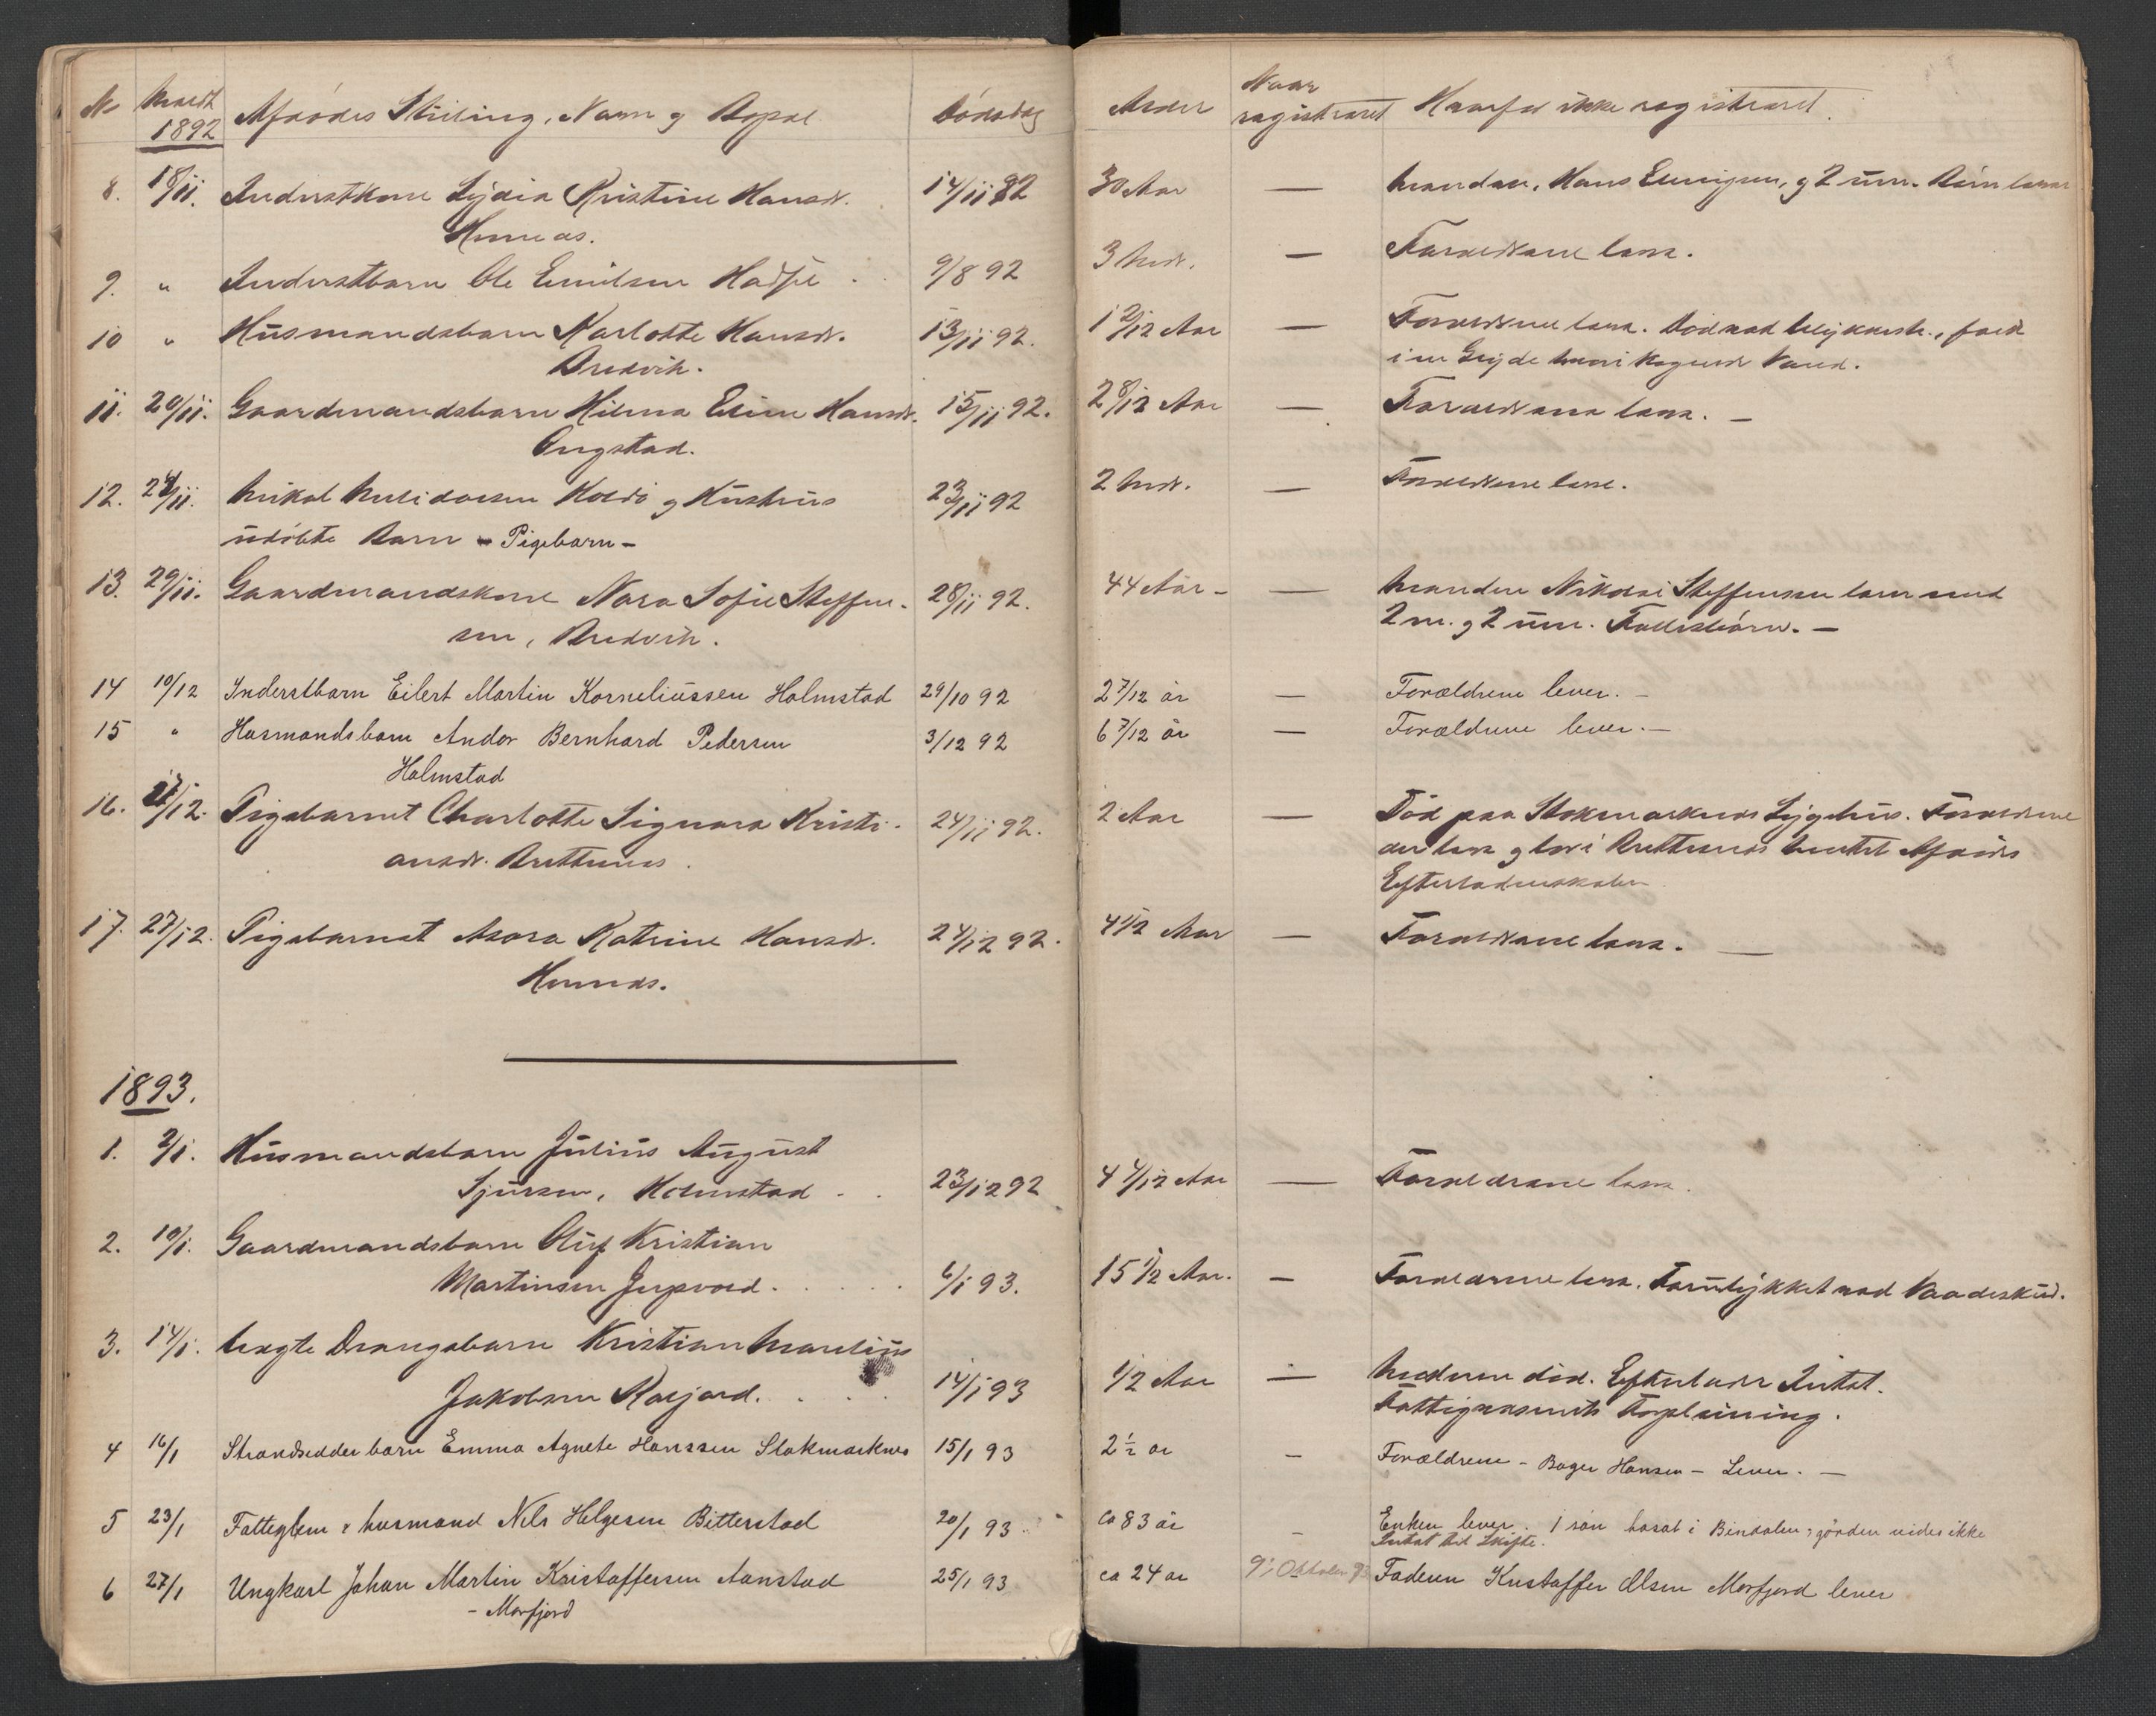 No Meldt 1892 Afdødes Stilling, Navn og Bopæl Dødsdag Alder Naar registreret Hvorfor ikke registreret.
8. 18/11. Inderstkone Lydia Kristine Hansdr. 14/11 92 30 Aar — Manden, Hans Elingsen, og 2 um. Børn lever
Hennes.
9. " Inderstbarn Ole Emilsen Hadsel 9/8 92 3 Mdr. — Forældrene lever.
10 " Husmandsbarn Karlotte Hansdr. 13/11 92. 1 2/12 Aar — Forældrene lever. Død ved Ulykkestr., faldt
Bredvik. i en Gryde med kogende Vand.
11. 20/11. Gaardmandsbarn Hilma Eline Hansdr. 15/11 92. 2 8/12 Aar — Forældrene lever. —
Ongstad.
12. 24/11. Mikal Melidorsen Holdø og Hustrus 23/11 92 2 Mdr. — Forældrene lever.
udøbte Barn - Pigebarn -
13. 29/11. Gaardmandskone Nara Sofie Steffen- 28/11 92. 44 Aar - — Manden Nikolai Steffensen lever med
sen, Bredvik. 2 m. og 2 um. Fællesbørn. —
14 10/12 Inderstbarn Eilert Martin Korneliussen Holmstad 29/10 92 2 7/12 år — Forældrene lever. —
15 " Husmandsbarn Andor Bernhard Pedersen 3/12 92 6 7/12 år — Forældrene lever. —
Holmstad
16. 27/12. Pigebarnet Charlotte Signora Kristi- 24/11 92. 2 Aar — Død paa Stokmarknes Sygehus. Forældrene
ansdr. Brettesnes. der lever og bor i Brettesnes hentet Afdødes
Efterladenskaber
17. 27/12. Pigebarnet Asora Katrine Hansdr. 24/12 92. 4 1/2 Aar — Forældrene lever. —
Hennes.
1893.
1. 2/1. Husmandsbarn Julius August
Sjursen, Holmstad . . 23/12 92 4 4/12 Aar — Forældrene lever.
2. 10/1. Gaardmandsbarn Oluf Kristian
Martinsen Jerpvold. . . . . 6/1 93. 15 1/2 Aar. — Forældrene lever. Forulykket ved Vaadeskud.
3. 14/1. Uægte Drengebarn Kristian Marelius
Jakobsen Rasjord. . . . 14/1 93 1/2 Aar — Moderen død. Efterlader Intet.
Fattigvæsenets Forpleining.
4 16/1 Strandsidderbarn Emma Agnete Hanssen Stokmarknes 15/1 93 2 1/2 år — Forældrene - Bager Hansen - Lever. —
5 23/1 Fattiglem & husmand Nils Helgesen Bitterstad 20/1 93. ca 83 år — Enken lever. 1 søn bosat i Bindalen, gården vides ikke
Intet til Skifte.
6 27/1 Ungkarl Johan Martin Kristoffersen Aanstad 25/1 93 ca 24 år 9' Oktober 93 Faderen Kristoffer Olsen Morfjord lever
- Morfjord